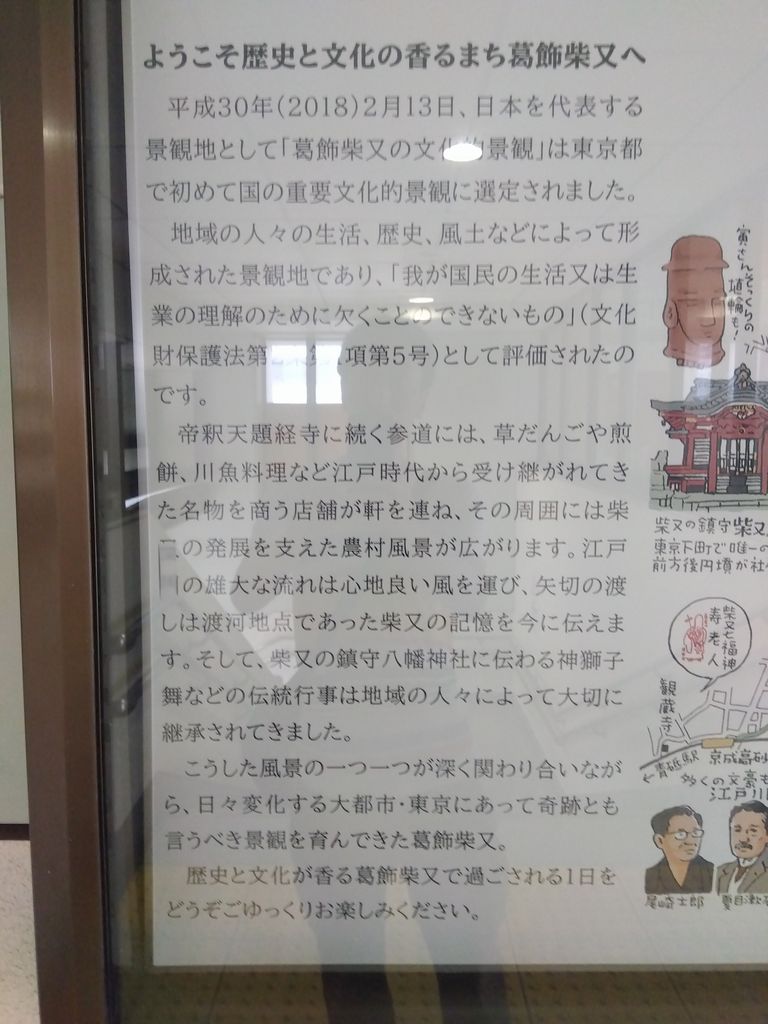 ようこそ歴史と文化の香るまち葛飾柴又へ
平成30年(2018)2月13日、日本を代表する
景観地として「葛飾柴又の文化的景観」は東京都
で初めて国の重要文化的景観に選定されました。
地域の人々の生活、歴史、風土などによって形
成された景観地であり、「我が国民の生活又は生
業の理解のために欠くことのできないもの」(文化
財保護法第2条第1項第5号)として評価されたの
です。
帝釈天題経寺に続く参道には、草だんごや煎
餅、川魚料理など江戸時代から受け継がれてき
た名物を商う店舗が軒を連ね、その周囲には柴
又の発展を支えた農村風景が広がります。江戸
川の雄大な流れは心地良い風を運び、矢切の渡
しは渡河地点であった柴又の記憶を今に伝えま
す。そして、柴又の鎮守八幡神社に伝わる神獅子
舞などの伝統行事は地域の人々によって大切に
継承されてきました。
こうした風景の一つ一つが深く関わり合いなが
ら、日々変化する大都市・東京にあって奇跡とも
言うべき景観を育んできた葛飾柴又。
歴史と文化が香る葛飾柴又で過ごされる1日を
どうぞごゆっくりお楽しみください。
寅さんそっくりの
埴輪も!
柴又の鎮守柴又
東京下町で唯一の
前方後円墳が社
柴又七福神
寿老人
観蔵寺
京成高砂
青砥駅
多くの文豪も
江戸川
尾崎士郎
夏目漱